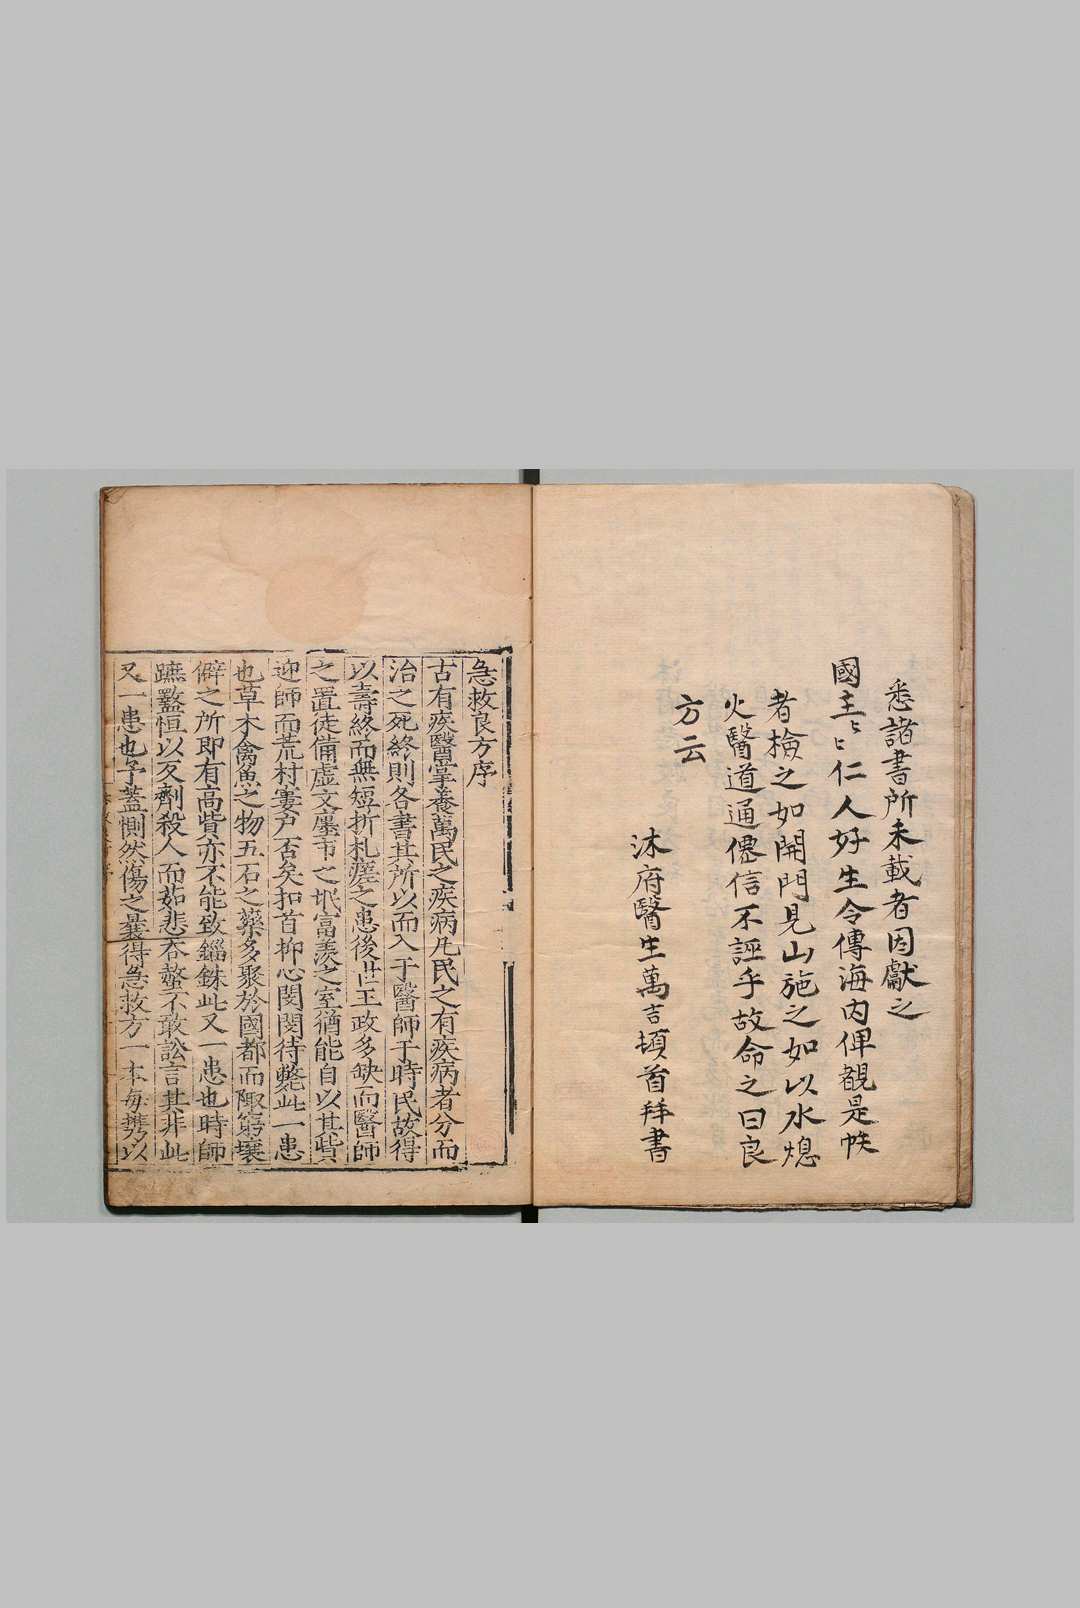 悉諸書所未載者因獻之
國主〻〻仁人好生令傳海内俾覩是帙
者撿之如開門見山施之如以水熄
火醫道通僊信不誣乎故命之曰良
方云
沐府醫生萬吉頓首拜書
急救良方序
古有疾醫掌養萬民之疾病凡民之有疾病者分而
治之死終則各書其所以而入于醫師于時民故得
以壽終而無短折札瘥之患後世王政多缺而醫師
之置徒備虚文廛市之氓富羨之室猶能自以其貲
迎師而荒村寠戶否矣扣首抑心閔閔待斃此一患
也草木禽魚之物五石之藥多聚於國都而陬窮壤
僻之所即有高貲亦不能致錙銖此又一患也時師
蹠盭恒以反劑殺人而茹悲吞螫不敢訟言其非此
又一患也予蓋惻然傷之曩得急救方一本每攜以